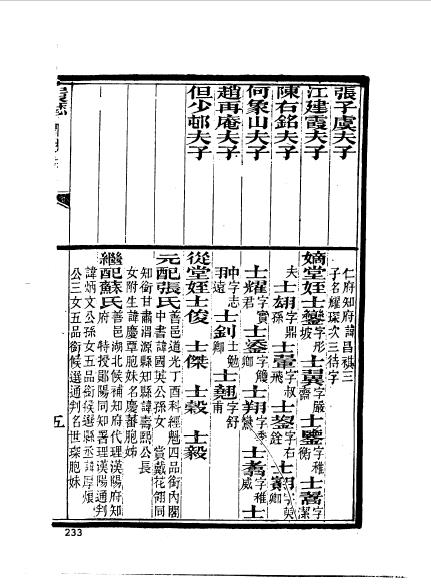 張子虞夫子
江建霞夫子
陳右銘夫子
何象山夫子
趙再庵夫子
但少邨夫子
仁府知府諱昌祺三
子名耀琛次三待字
嫡堂姪士鑾字彤坡 士翼字嚴齋 士鑒字稚衡 士翯字潔
夫 士翃字鼎孫 士翬字叔飛 士鋆字右銓
士燿字實君 士鋈字卿 士翔字季鸞 士翥字稚威 士
卹字志遠 士釗士勉卿 士翹字舒甫
從堂姪士俊 士傑 士穀 士毅
元配張氏善邑道光丁酉科經魁四品銜內閣
中書諱國英公孫女 賞戴花翎同
知銜甘肅渭源縣知縣諱壽熙公長
女附生諱慶蕚胞妹名慶蕃胞姊
繼配蘇氏善邑湖北候補知府代理漢陽府知
府 特授鄖陽同知署理漢陽通判
諱炳文公孫女五品銜候選縣丞諱厚焜
公三女五品銜候選通判名世琛胞妹
五
233